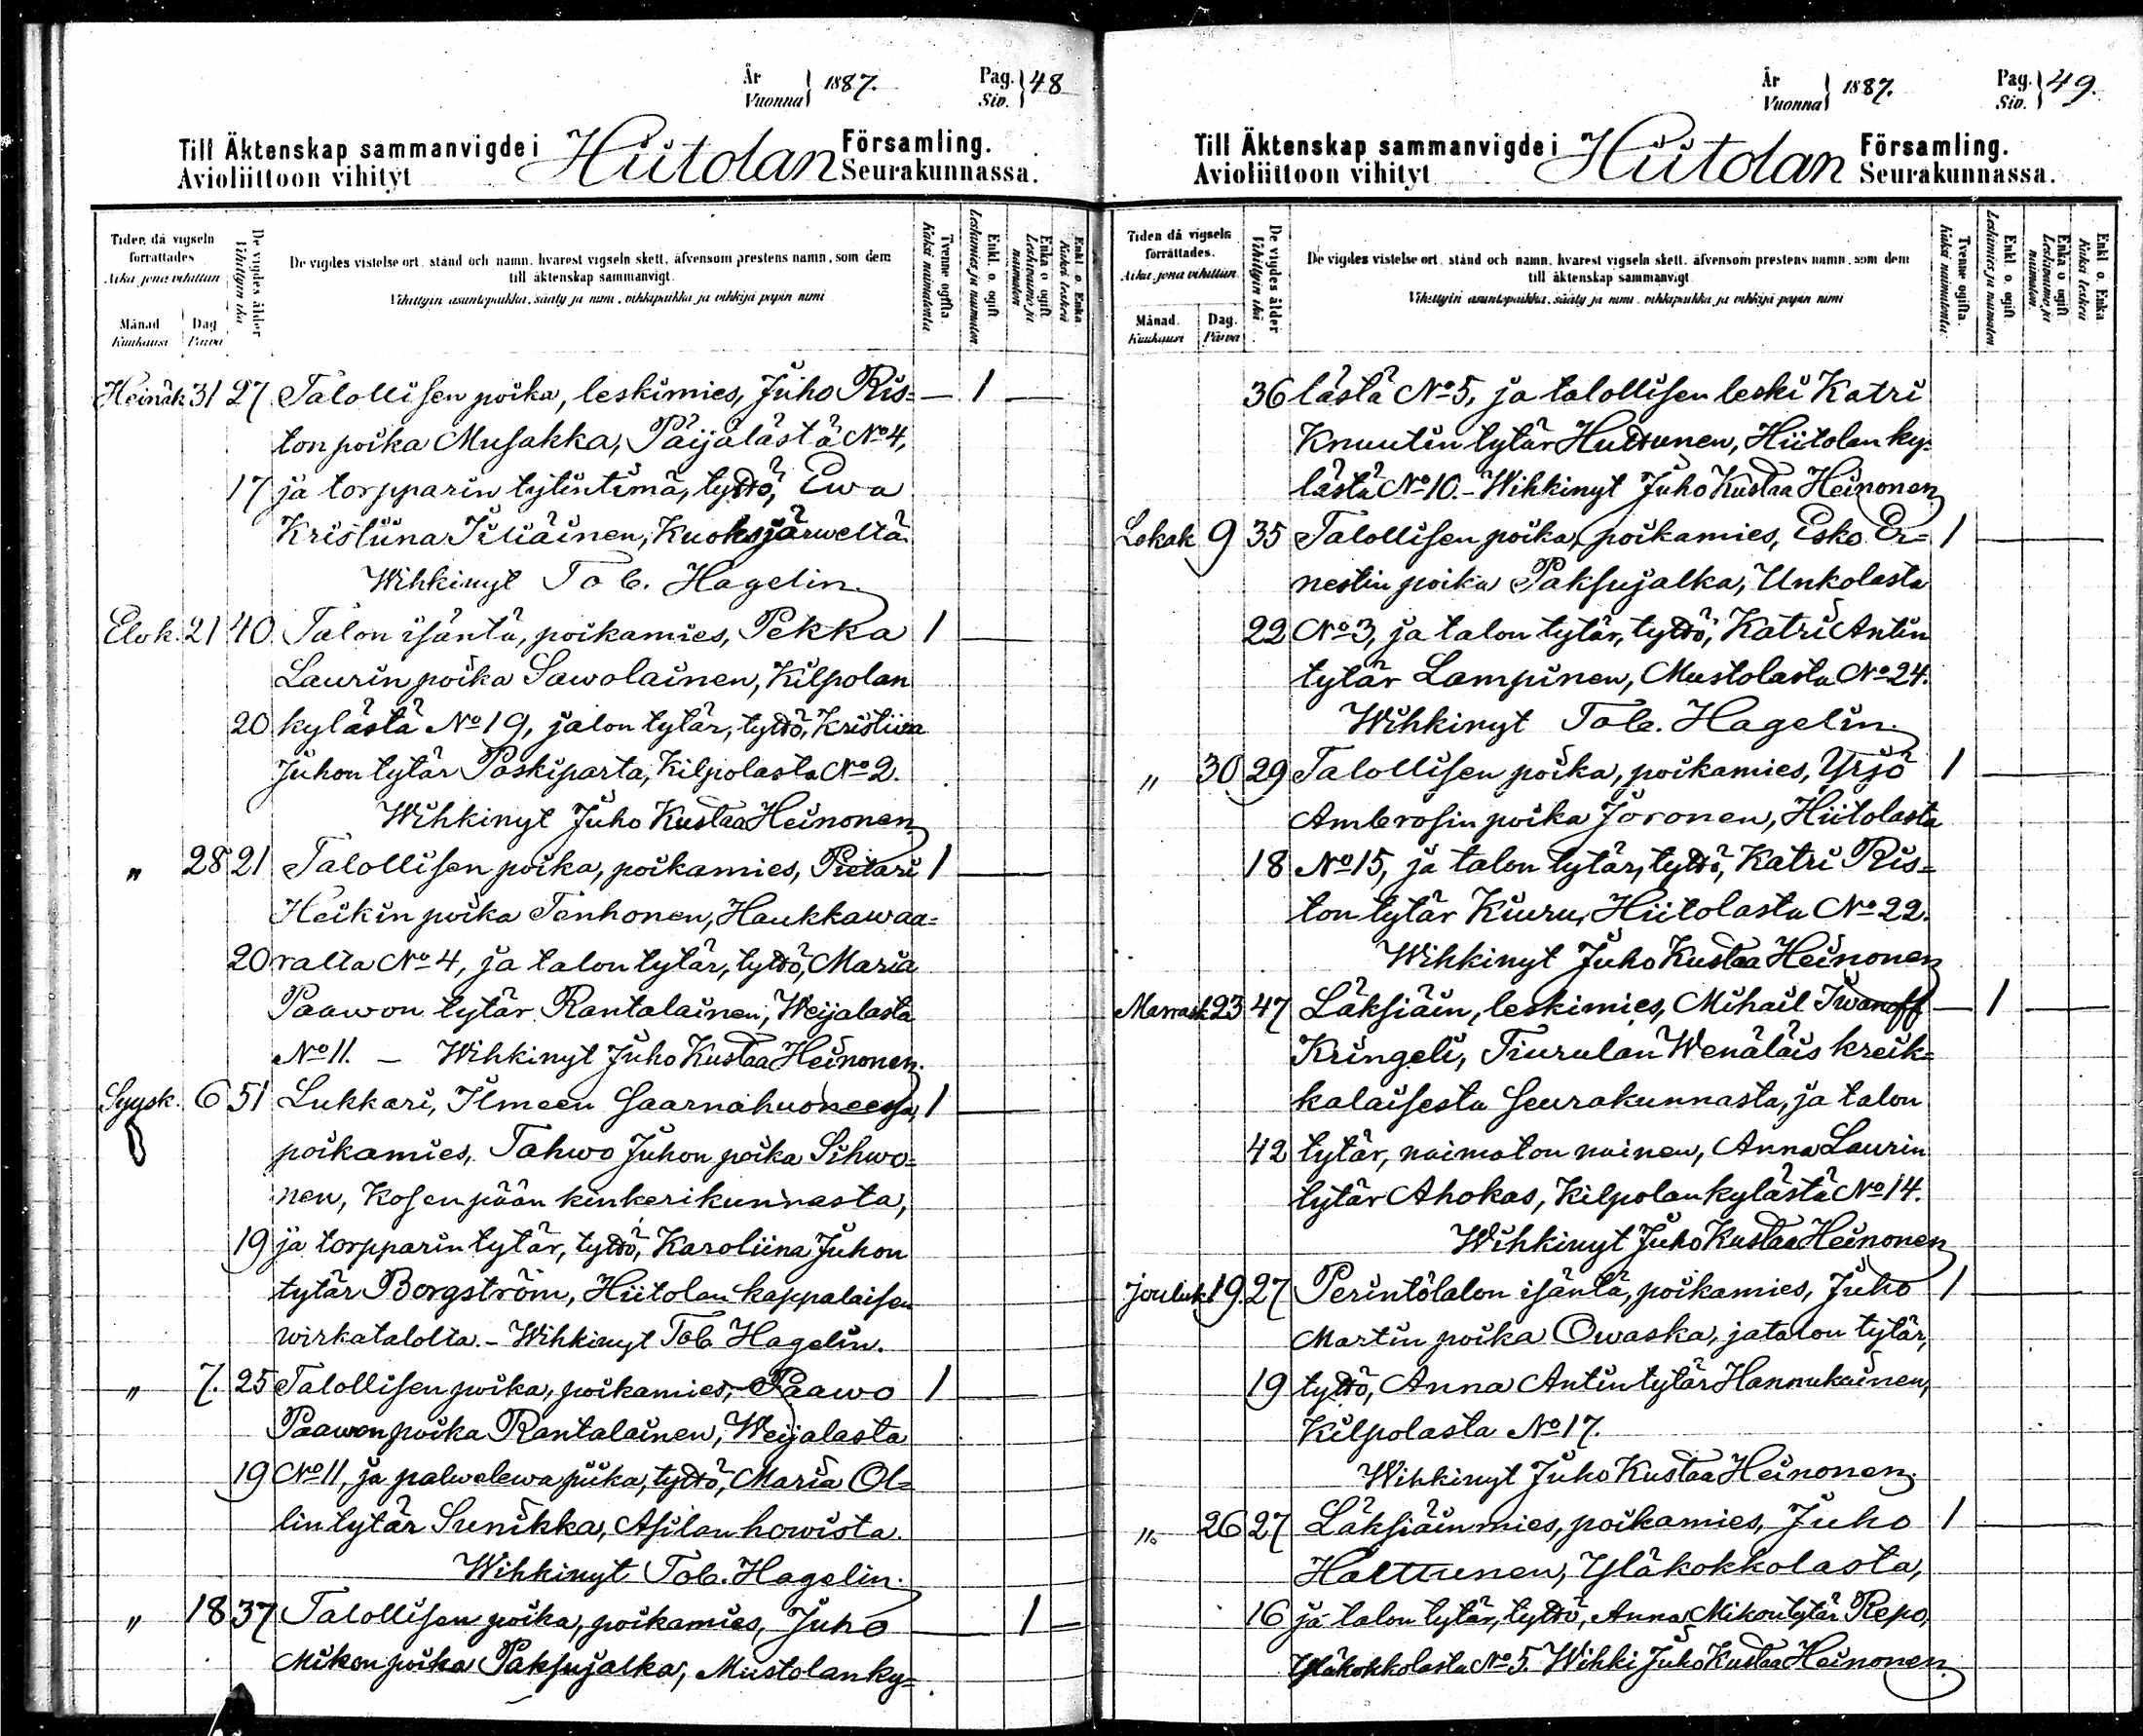 År Vuonna } 1887. Pag. Siv. } 48
Till Äktenskap sammanvigde i Hiitolan Församling.
Avioliittoon vihityt Seurakunnassa.
Tiden då vigseln förrättades
Aika, jona vihittiin
Månad Kuukausi
Dag Päivä
De vigdes ålder
Vihittyin ikä
De vigdes vistelseort, stånd och namn, hvarest vigseln skett, äfvensom prestens namn, som dem
till äktenskap sammanvigt.
Vihittyin asuntopaikka, sääty ja nimi, vihkipaikka ja vihkijä papin nimi
Tvenne ogifta. Kaksi naimatonta
Enkl. o. ogift. Leskimies ja naimaton.
Enka o ogift Leskivaimo ja naimaton
Enkl o. Enka. Kaksi leskeä
Heinäk. 31 27 Talollisen poika, leskimies, Juho Ris= — 1 —
ton poika Musakka, Päijälästä No 4,
17 ja torpparin tytintimä, tyttö, Ewa
Kristiina Iiliäinen, Kuoksjärweltä.
Wihkinyt Tob. Hagelin.
Elok. 21 40 Talon isäntä, poikamies, Pekka 1 —
Laurin poika Sawolainen, Kilpolan
20 kylästä No 19, jalon tytär, tyttö, Kristiina
Juhon tytär Paskiparta, Kilpolasta No 2.
Wihkinyt Juho Kustaa Heinonen
„ 28 21 Talollisen poika, poikamies, Pietari 1 —
Heikin poika Tenhonen, Haukkawaa=
20 ralta No 4, ja talon tytär, tyttö, Maria
Paawon tytär Rantalainen, Weijalasta
No 11. — Wihkinyt Juho Kustaa Heinonen.
Syysk. 6 51 Lukkari, Ilmeen Saarnahuoneessa, 1 —
poikamies, Tahwo Juhon poika Sihwo=
nen, Kosenpään kinkerikunnasta,
19 ja torpparin tytär, tyttö, Karoliina Juhon
tytär Borgström, Hiitolan kappalaisen
wirkatalolta. – Wihkinyt Tob Hagelin.
„ 7. 25 Talollisen poika, poikamies, Paawo 1 —
Paawon poika Rantalainen, Weijalasta
19 No 11, ja palwelewa piika, tyttö, Maria Ol=
lin tytär Sunikka, Asilan howista.
Wihkinyt Tob. Hagelin.
„ 18 37 Talollisen poika, poikamies, Juho — 1 —
Mikon poika Paksujalka, Mustolan ky=
År Vuonna } 1887. Pag. Siv. } 49.
Till Äktenskap sammanvigde i Hiitolan Församling.
Avioliittoon vihityt Seurakunnassa.
Tiden då vigseln förrättades.
Aika, jona vihittiin
Månad. Kuukausi
Dag. Päivä
De vigdes ålder
Vihittyin ikä.
De vigdes vistelseort, stånd och namn, hvarest vigseln skett, äfvensom prestens namn, som dem
till äktenskap sammanvigt.
Vihittyin asuntopaikka, sääty ja nimi, vihkipaikka ja vihkijä papin nimi
Tvenne ogifta. Kaksi naimatonta.
Enkl. o. ogift. Leskimies ja naimaton
Enka o ogift Leskivaimo ja naimaton.
Enkl o. Enka. Kaksi leskeä
36 lästä No 5, ja talollisen leski Katri
Knuutin tytär Huttunen, Hiitolan ky=
lästä No 10. – Wihkinyt Juho Kustaa Heinonen
Lokak 9 35 Talollisen poika, poikamies, Esko Er= 1 —
nestin poika Paksujalka, Unkolasta
22 No 3, ja talon tytär, tyttö, Katri Antin
tytär Lampinen, Mustolasta No 24.
Wihkinyt Tob. Hagelin.
„ 30 29 Talollisen poika, poikamies, Yrjö 1 —
Ambrosin poika Joronen, Hiitolasta
18 No 15, ja talon tytär, tyttö, Katri Ris=
ton tytär Kiuru, Hiitolasta No 22.
Wihkinyt Juho Kustaa Heinonen
Marrask 23 47 Läksiäin, leskimies, Mihail Iwanoff — 1 —
Kringeli, Tiurulan Wenäläis kreik=
kalaisesta seurakunnasta, ja talon
42 tytär, naimaton nainen, Anna Laurin
tytär Ahokas, Kilpolan kylästä No 14.
Wihkinyt Juho Kustaa Heinonen
Jouluk 19. 27 Perintötalon isäntä, poikamies, Juho 1 —
Martin poika Owaska, ja talon tytär,
19 tyttö, Anna Antin tytär Hannukainen,
Kilpolasta No 17.
Wihkinyt Juho Kustaa Heinonen.
„ 26 27 Läksiäinmies, poikamies, Juho 1 —
Halttunen, Yläkokkolasta,
16 ja talon tytär, tyttö, Anna Mikon tytär Repo,
Yläkokkolasta No 5. Wihki Juho Kustaa Heinonen.